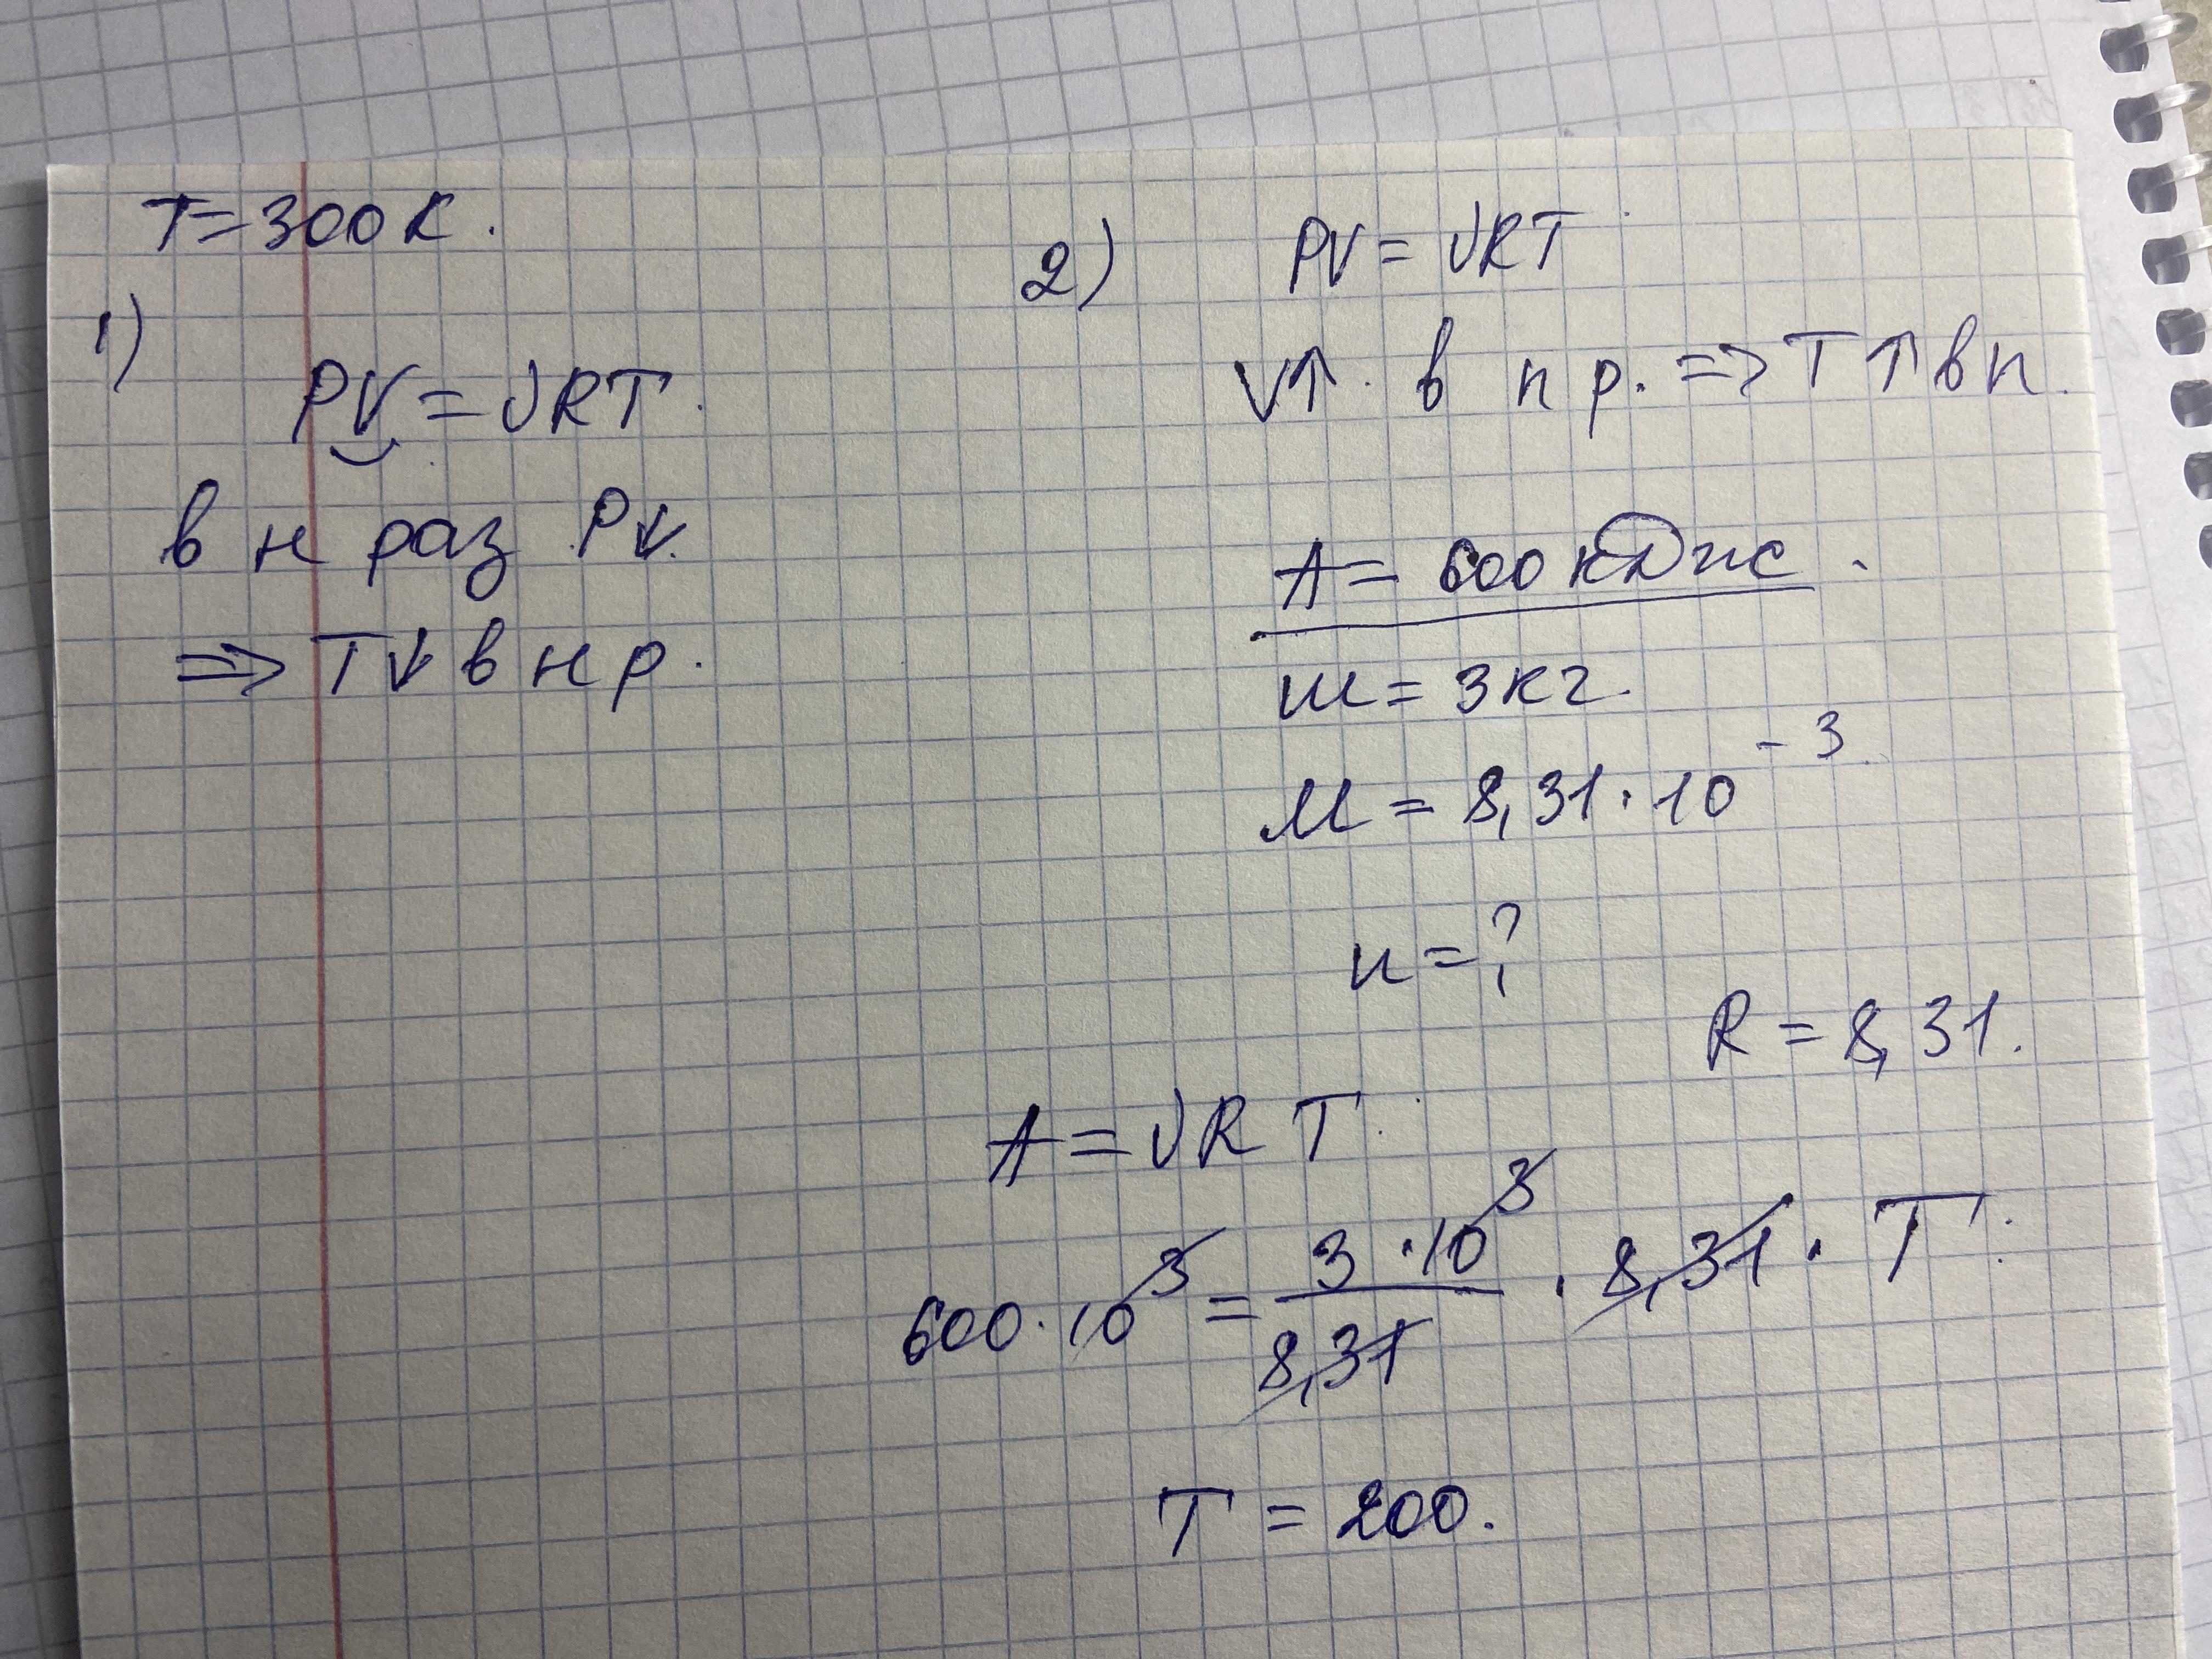 T = 300 К.
1)
PV = νRT.
в н раз P↓.
=> T↓ в н р.
2) PV = νRT
V↑ в н р. => T↑ в н.
A = 600 кДж.
m = 3 кг.
M = 8,31 · 10⁻³
n = ?
R = 8,31.
A = νRT.
600 · 10³ = 3 · 10³ / 8,31 · 8,31 · T.
T = 200.